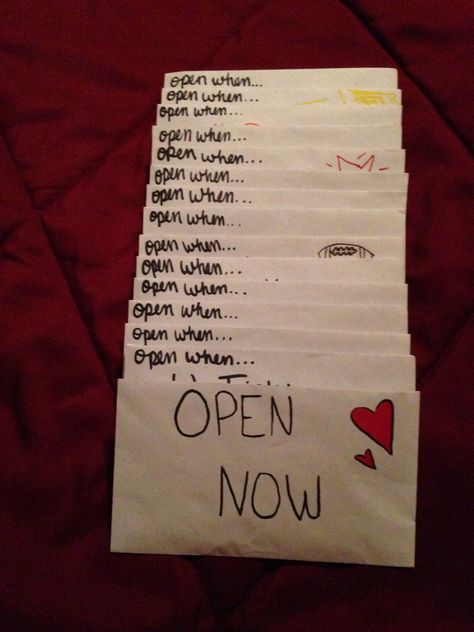 open when...
open when...
open when...
open when...
open when...
open when...
open when...
open when...
open when...
open when...
open when...
open when...
open when...
open when...
OPEN
NOW